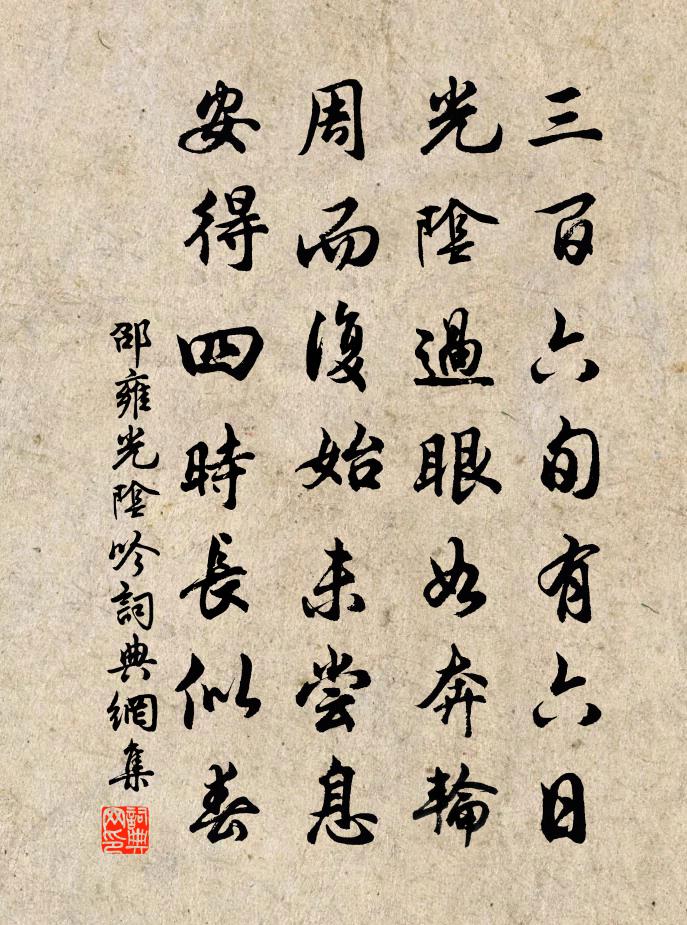 三百六旬有六日
光陰過眼如奔輪
周而復始未嘗息
安得四時長似春
邵雍光陰吟詞典網集
詞典網印